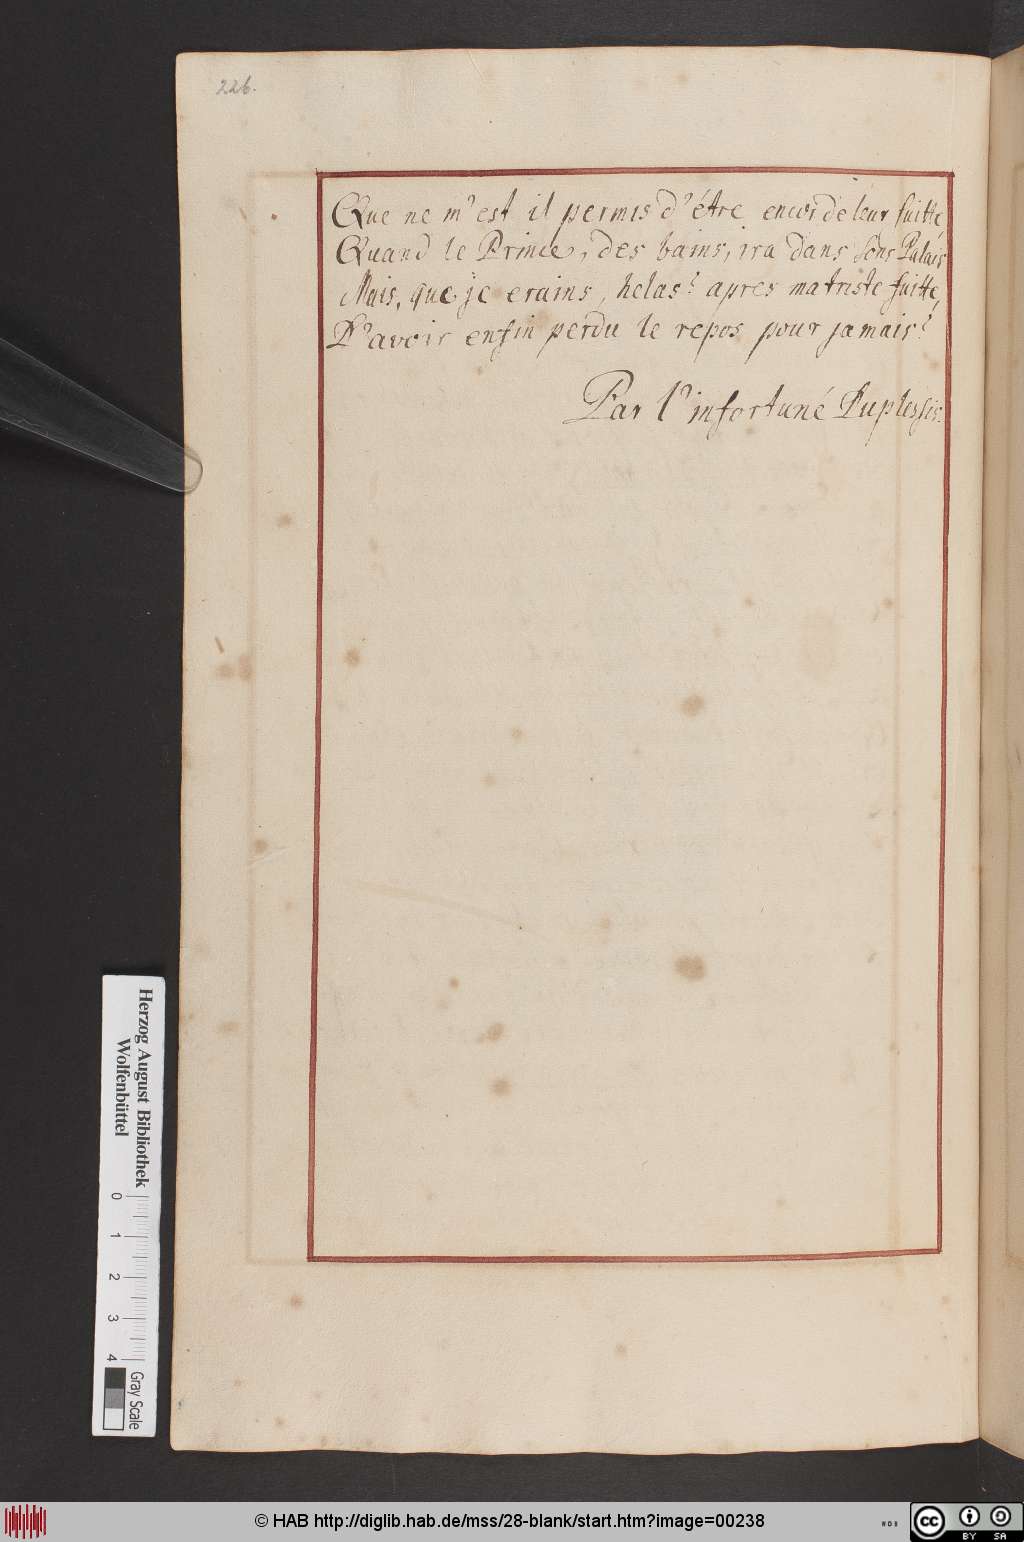 226.
Que ne m'est il permis d'étre encor de leur suitte
Quand le Prince, des bains, ira dans sons Palais
Mais, que je crains, helas! apres ma triste fuitte,
D'avoir enfin perdu le repos pour jamais!
Par l'infortuné Duplessis.
Herzog August Bibliothek
Wolfenbüttel
0 1 2 3 4
Gray Scale
© HAB http://diglib.hab.de/mss/28-blank/start.htm?image=00238
cc BY SA